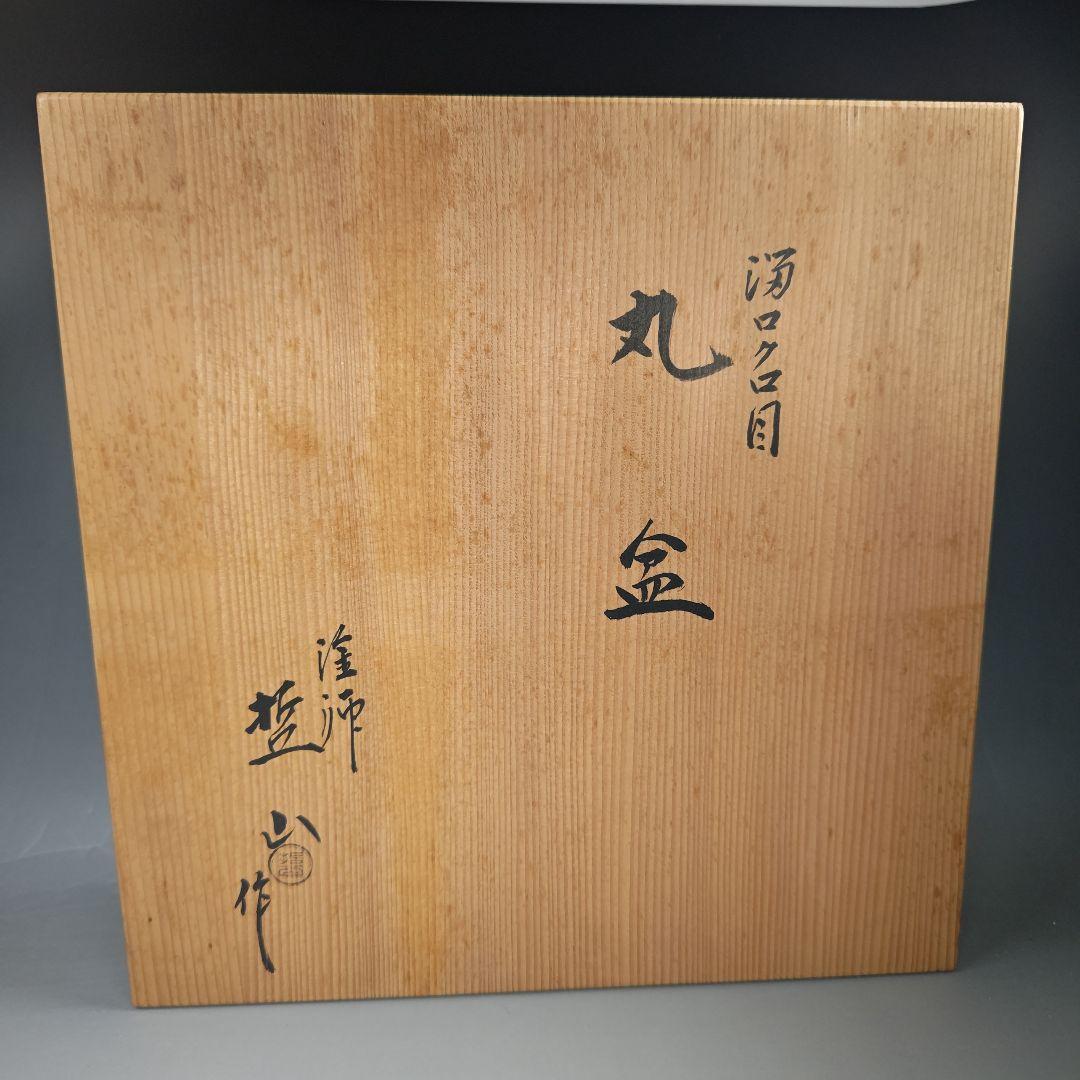 溜ロクロ目
丸盆
塗師
哲山作